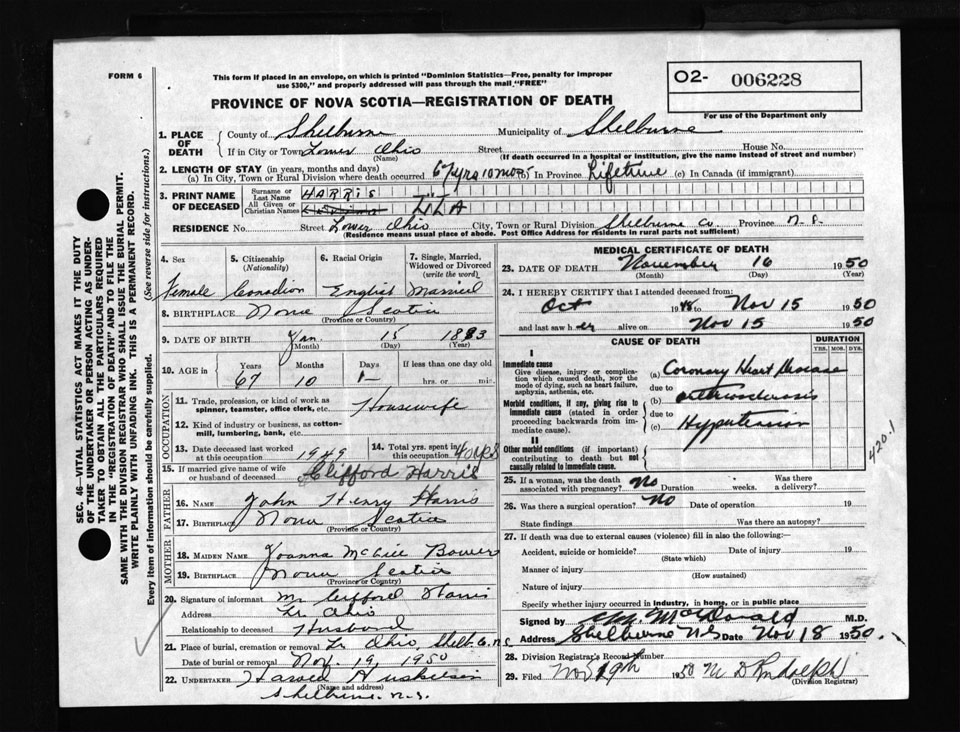 FORM 6
This form if placed in an envelope, on which is printed "Dominion Statistics—Free, penalty for improper
use $300," and properly addressed will pass through the mail "FREE"
O2- 006228
For use of the Department only
PROVINCE OF NOVA SCOTIA—REGISTRATION OF DEATH
SEC. 46—VITAL STATISTICS ACT MAKES IT THE DUTY
OF THE UNDERTAKER OR PERSON ACTING AS UNDER-
TAKER TO OBTAIN ALL THE PARTICULARS REQUIRED
IN THE "REGISTRATION OF DEATH" AND TO FILE THE
SAME WITH THE DIVISION REGISTRAR WHO SHALL ISSUE THE BURIAL PERMIT.
WRITE PLAINLY WITH UNFADING INK. THIS IS A PERMANENT RECORD.
Every item of information should be carefully supplied. (See reverse side for instructions.)
1. PLACE OF DEATH
County of Shelburne Municipality of Shelburne
If in City or Town Lower Ohio Street House No.
(Name) (If death occurred in a hospital or institution, give the name instead of street and number)
2. LENGTH OF STAY (in years, months and days)
(a) In City, Town or Rural Division where death occurred 67 yrs 10 mos (b) In Province Lifetime (c) In Canada (if immigrant)
3. PRINT NAME OF DECEASED
Surname or Last Name HARRIS
All Given or Christian Names LILA
RESIDENCE No. Street Lower Ohio City, Town or Rural Division Shelburne Co. Province N.S.
(Residence means usual place of abode. Post Office Address for residents in rural parts not sufficient)
4. Sex Female
5. Citizenship (Nationality) Canadian
6. Racial Origin English
7. Single, Married, Widowed or Divorced (write the word) Married
8. BIRTHPLACE Nova Scotia
(Province or Country)
9. DATE OF BIRTH Jan. 15 1883
(Month) (Day) (Year)
10. AGE in Years 67 Months 10 Days 1 If less than one day old hrs. or min.
OCCUPATION
11. Trade, profession, or kind of work as spinner, teamster, office clerk, etc. Housewife
12. Kind of industry or business, as cotton-mill, lumbering, bank, etc.
13. Date deceased last worked at this occupation 1949
14. Total yrs. spent in this occupation 40 yrs
15. If married give name of wife or husband of deceased Clifford Harris
FATHER
16. Name John Henry Harris
17. Birthplace Nova Scotia
(Province or Country)
MOTHER
18. MAIDEN NAME Joanna McGill Bower
19. BIRTHPLACE Nova Scotia
(Province or Country)
20. Signature of informant Mr Clifford Harris
Address Lr Ohio
Relationship to deceased Husband
21. Place of burial, cremation or removal Lr Ohio, Shelb. Co. N.S.
Date of burial or removal Nov. 19, 1950
22. UNDERTAKER Harold
(Name and address)
Shelburne. N.S.
MEDICAL CERTIFICATE OF DEATH
23. DATE OF DEATH November 16 1950
(Month) (Day) (Year)
24. I HEREBY CERTIFY that I attended deceased from:
Oct 1948 to Nov 15 1950
and last saw her alive on Nov 15 1950
CAUSE OF DEATH DURATION
YRS. MOS. DYS.
I
Immediate cause
Give disease, injury or complication which caused death, NOT the mode of dying, such as heart failure, asphyxia, asthenia, etc.
(a) Coronary Heart Disease
due to
Morbid conditions, if any, giving rise to immediate cause (stated in order proceeding backwards from immediate cause).
(b) arteriosclerosis
due to
(c) Hypertension
II
Other morbid conditions (if important) contributing to death but not causally related to immediate cause.
420.1
25. If a woman, was the death associated with pregnancy? No Duration weeks. Was there a delivery?
26. Was there a surgical operation? No Date of operation 19
State findings Was there an autopsy?
27. If death was due to external causes (violence) fill in also the following:—
Accident, suicide or homicide? Date of injury 19
(State which)
Manner of injury
(How sustained)
Nature of injury
Specify whether injury occurred in industry, in home, or in public place
Signed by McDonald M.D.
Address Shelburne N.S Date Nov 18 1950.
28. Division Registrar's Record Number
29. Filed Nov 19th 1950
(Division Registrar)